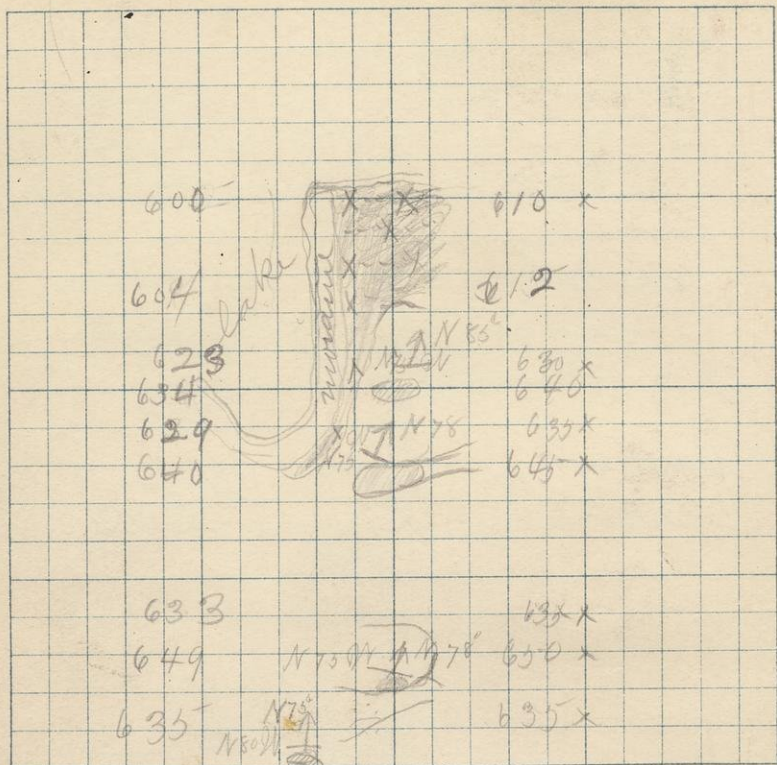 600 610 x
lake
moraine
604 612
N 85°
623 630 x
634 640
629 N 78 635 x
640 N75 645 x
633 635 x
649 N 75 W N 78° 650 x
635 N75° 635 x
N80W